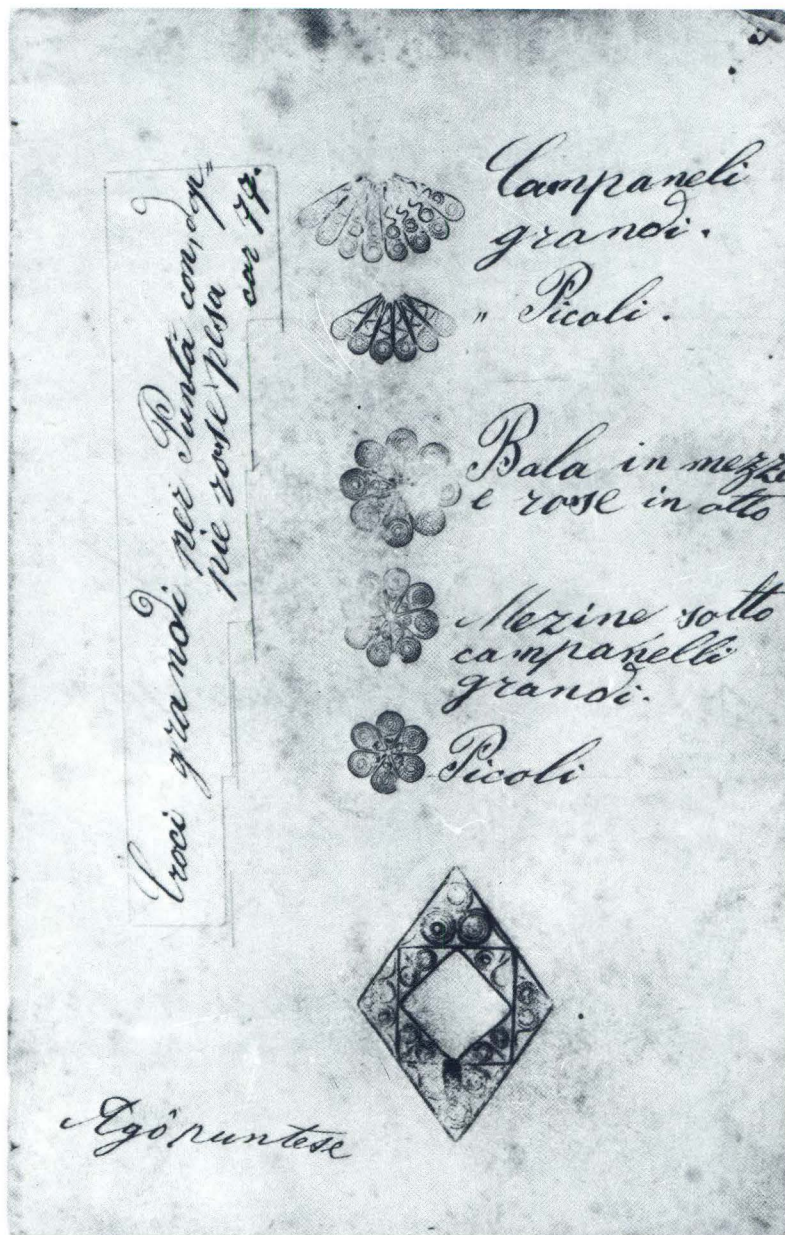 Croci grandi per Punta con, dop„
pie rose pesa
car 77.
Campaneli
grandi.
„ Picoli.
Bala in mezzo
e rose in atto
Mezine sotto
campanelli
grandi.
Picoli
Agôpuntese